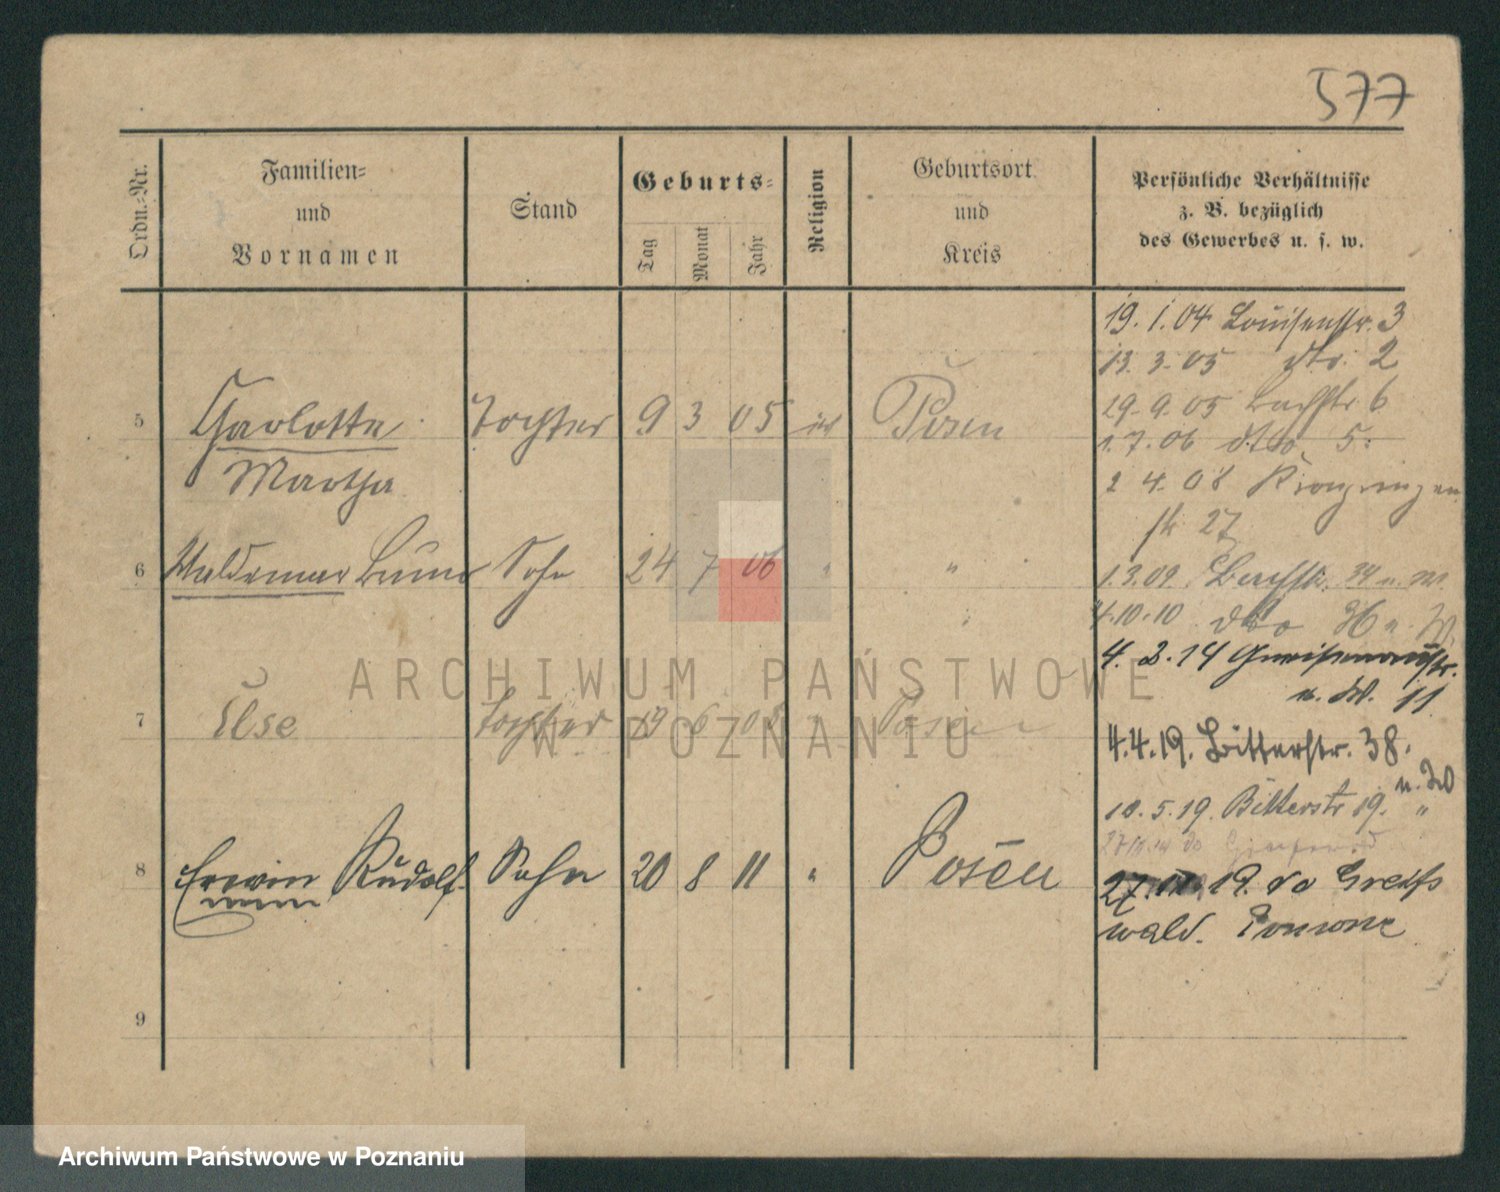 577
Ordn.-Nr.
Familien-
und
Vornamen
Stand
Geburts-
Tag
Monat
Jahr
Religion
Geburtsort
und
Kreis
Persönliche Verhältnisse
z. B. bezüglich
des Gewerbes u. s. w.
19. 1. 04 Louisenstr. 3
13. 3. 05 dto. 2
29. 9. 05 Bachstr 6
5 Charlotte Tochter 9 3 05 Posen
1. 7. 06 dto 5.
Martha
2 4. 08 Kronprinzen
str 27
6 Waldemar Bruno Sohn 24 7 06 " "
1. 3. 09. 34
4.10.10 dto
4. 2. 14 Gneisenaustr.
11
7 Else Tochter 19 6 08 " Posen
4. 4. 19. Bitterstr. 38.
10. 5. 19. Bitterstr 19. "
8 Erwin Rudolf Sohn 20 8 11 " Posen
27. 19. Greifs
wald.
9
ARCHIWUM PAŃSTWOWE
W POZNANIU
Archiwum Państwowe w Poznaniu